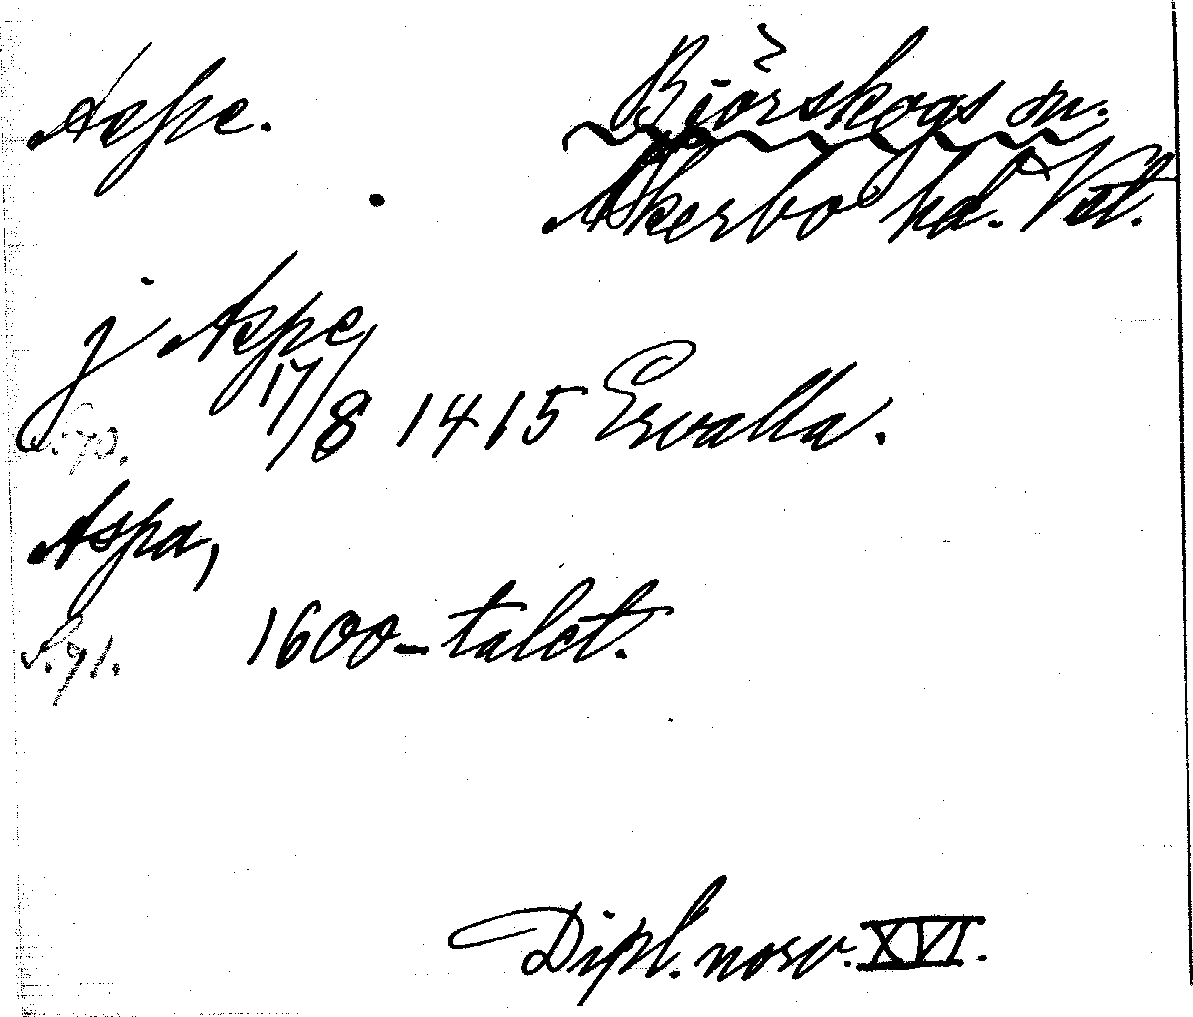 Aspe. Björskogs sn.
Åkerbo hd. Vstl.
j Aspe
17/8 1415 Ervalla.
S. 70.
Aspa,
1600-talet.
S. 71.
Dipl. norv. XVI.